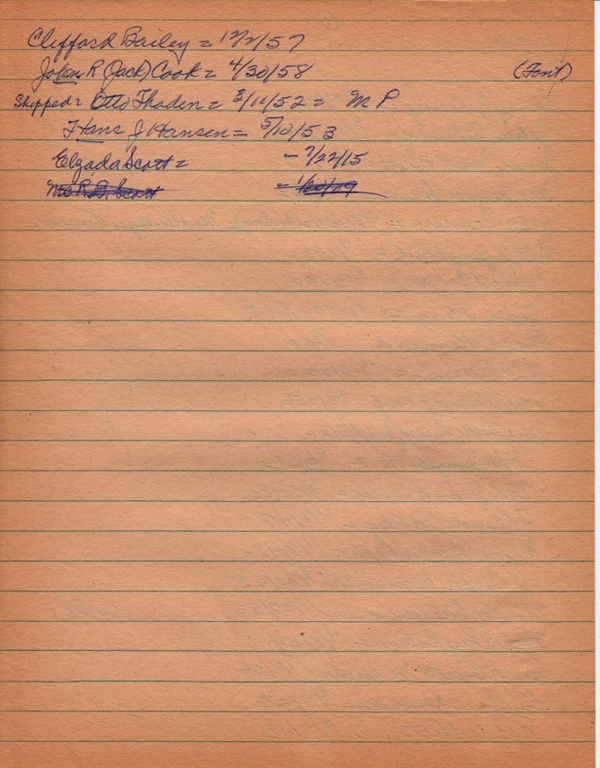 Clifford Bailey = 12/2/57
John R (Jack) Cook = 4/30/58 (Font)
Shipped = Otto Thaden = 3/11/52 = M P
Hans J Hansen = 5/10/53
Elzada Scott = - 7/22/15
Mrs R.B. Scott - 1/20/09